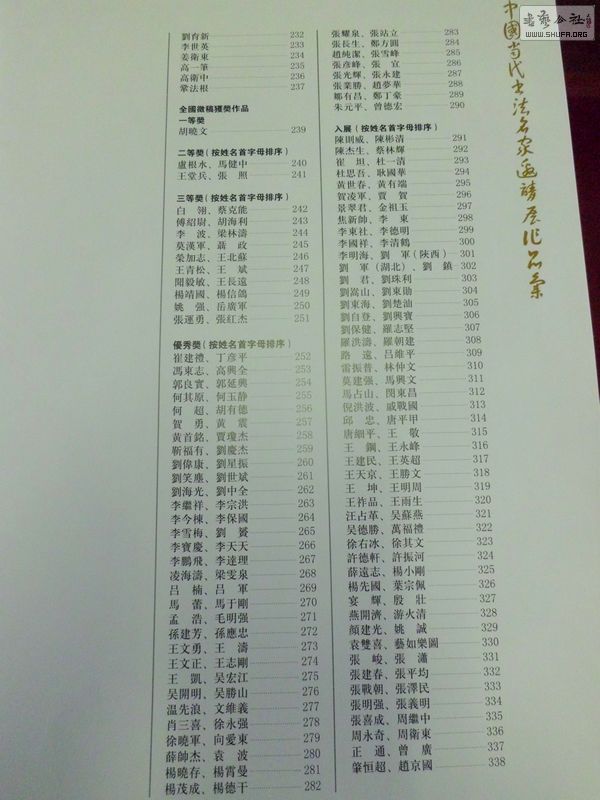 劉育新 232
李世英 233
姜衛東 234
高一筆 235
高衛中 236
常法根 237
全國徵稿獲獎作品
一等獎
胡曉文 239
二等獎（按姓名首字母排序）
盧根水、馬健中 240
王堂兵、張照 241
三等獎（按姓名首字母排序）
白翎、蔡克能 242
傅紹尉、胡海利 243
李波、梁林濤 244
莫漢軍、聶政 245
榮加志、王北蘇 246
王青松、王斌 247
聞毅敏、王長遠 248
楊靖國、楊信鴿 249
姚强、岳廣軍 250
張運勇、張紅杰 251
優秀獎（按姓名首字母排序）
崔建禮、丁彦平 252
馮東志、高興全 253
郭良實、郭延興 254
何其原、何玉静 255
何超、胡有德 256
賀勇、黄震 257
黄首銘、賈瓊杰 258
靳福有、劉慶杰 259
劉偉康、劉星振 260
劉笑塵、劉世斌 261
劉海光、劉中全 262
李繼祥、李宗洪 263
李今棟、李保國 264
李雪梅、劉賡 265
李寶慶、李天天 266
李鵬飛、李達理 267
凌海濤、梁雯泉 268
吕楠、吕軍 269
馬蕾、馬于剛 270
孟浩、毛明强 271
孫建芳、孫應忠 272
王文勇、王濤 273
王文正、王志剛 274
王凱、吴宏江 275
吴開明、吴勝山 276
温先浪、文維義 277
肖三喜、徐永强 278
徐曉軍、向愛東 279
薛帥杰、袁波 280
楊曉存、楊霄曼 281
楊茂成、楊德干 282
張耀泉、張站立 283
張長生、鄭方圓 284
趙純潔、張雪峰 285
張彦峰、張宣 286
張光輝、張永建 287
張業勝、趙夢華 288
鄒有昌、鄭丁豪 289
朱元平、曾德宏 290
入展（按姓名首字母排序）
陳則威、陳彬清 291
陳杰生、蔡林輝 292
崔坦、杜一清 293
杜思吾、耿國華 294
黄世春、黄有端 295
賀凌軍、賈賀 296
景翠君、金祖玉 297
焦新帥、李東 298
李東社、李德明 299
李國祥、李清鶴 300
李明海、劉軍（陝西） 301
劉軍（湖北）、劉鎮 302
劉君、劉珠利 303
劉嵩山、劉東勛 304
劉東海、劉楚汕 305
劉自登、劉興寶 306
劉保健、羅志堅 307
羅洪濤、羅朝建 308
路遠、吕維平 309
雷振普、林仲文 310
莫建强、馬興文 311
馬占山、閔東昌 312
倪洪波、戚戰國 313
邱忠、唐平甲 314
唐細平、王敬 315
王鋼、王永峰 316
王建民、王英超 317
王天京、王勝文 318
王坤、王明周 319
王祚品、王雨生 320
汪占革、吴蘇燕 321
吴德勝、萬福禮 322
徐右冰、徐其文 323
許德軒、許振河 324
薛遠志、楊小剛 325
楊先國、葉宗佩 326
宴輝、殷壯 327
燕開濟、游火清 328
顔建光、姚誠 329
袁雙喜、藝如樂圖 330
張峻、張瀟 331
張建春、張平均 332
張戰朝、張澤民 333
張明强、張義明 334
張喜成、周繼中 335
周永奇、周衛東 336
正通、曾廣 337
肇恒超、趙京國 338
中國當代書法名家邀請展作品集
書藝公社
WWW.SHUFA.ORG